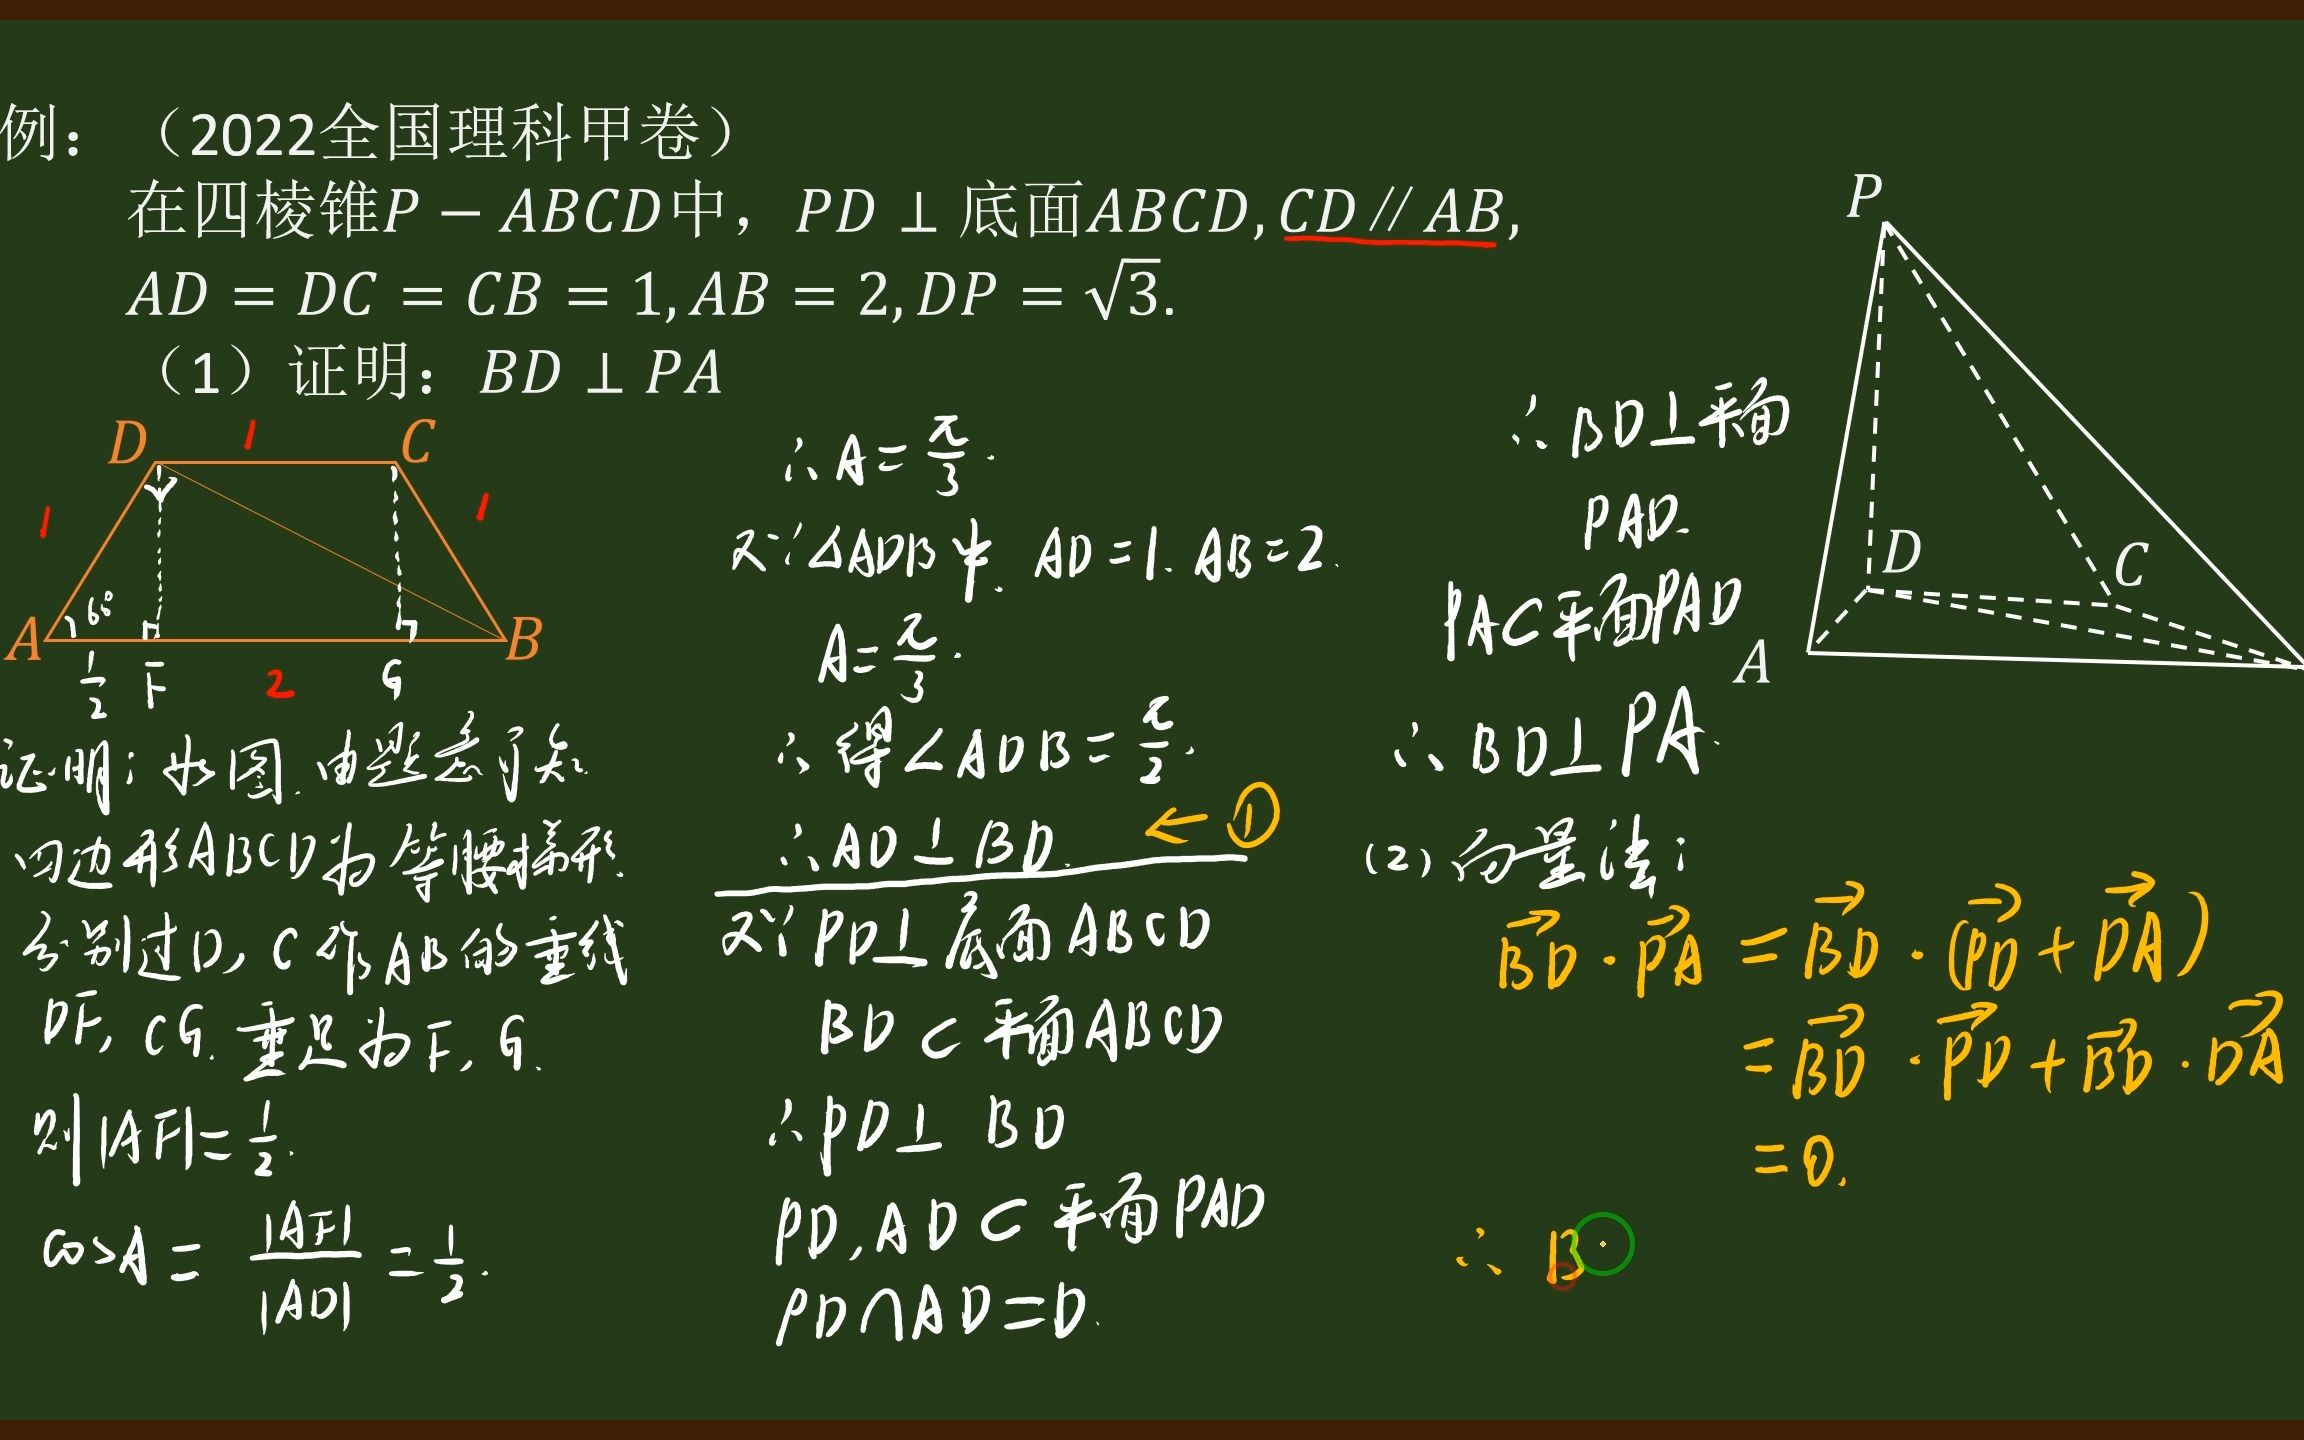 例：（2022全国理科甲卷）
在四棱锥P − ABCD中，PD ⊥ 底面ABCD, CD ∥ AB,
AD = DC = CB = 1, AB = 2, DP = √3.
（1）证明：BD ⊥ PA
D 1 C
1 1
A 60° B
1/2 F 2 G
证明：如图.由题意可知
四边形ABCD为等腰梯形.
分别过D, C作AB的垂线
DF, CG.垂足为F, G.
则|AF|=1/2.
cosA = |AF|/|AD| = 1/2.
∴A=π/3.
又∵△ADB中. AD=1. AB=2.
A=π/3.
∴得∠ADB=π/2.
∴AD⊥BD. ← ①
又∵PD⊥底面ABCD
BD⊂平面ABCD
∴PD⊥BD
PD, AD⊂平面PAD
PD∩AD=D.
∴BD⊥平面
PAD.
PA⊂平面PAD
∴BD⊥PA.
(2)向量法：
BD⃗·PA⃗=BD⃗·(PD⃗+DA⃗)
=BD⃗·PD⃗+BD⃗·DA⃗
=0.
∴B
P
D
C
A